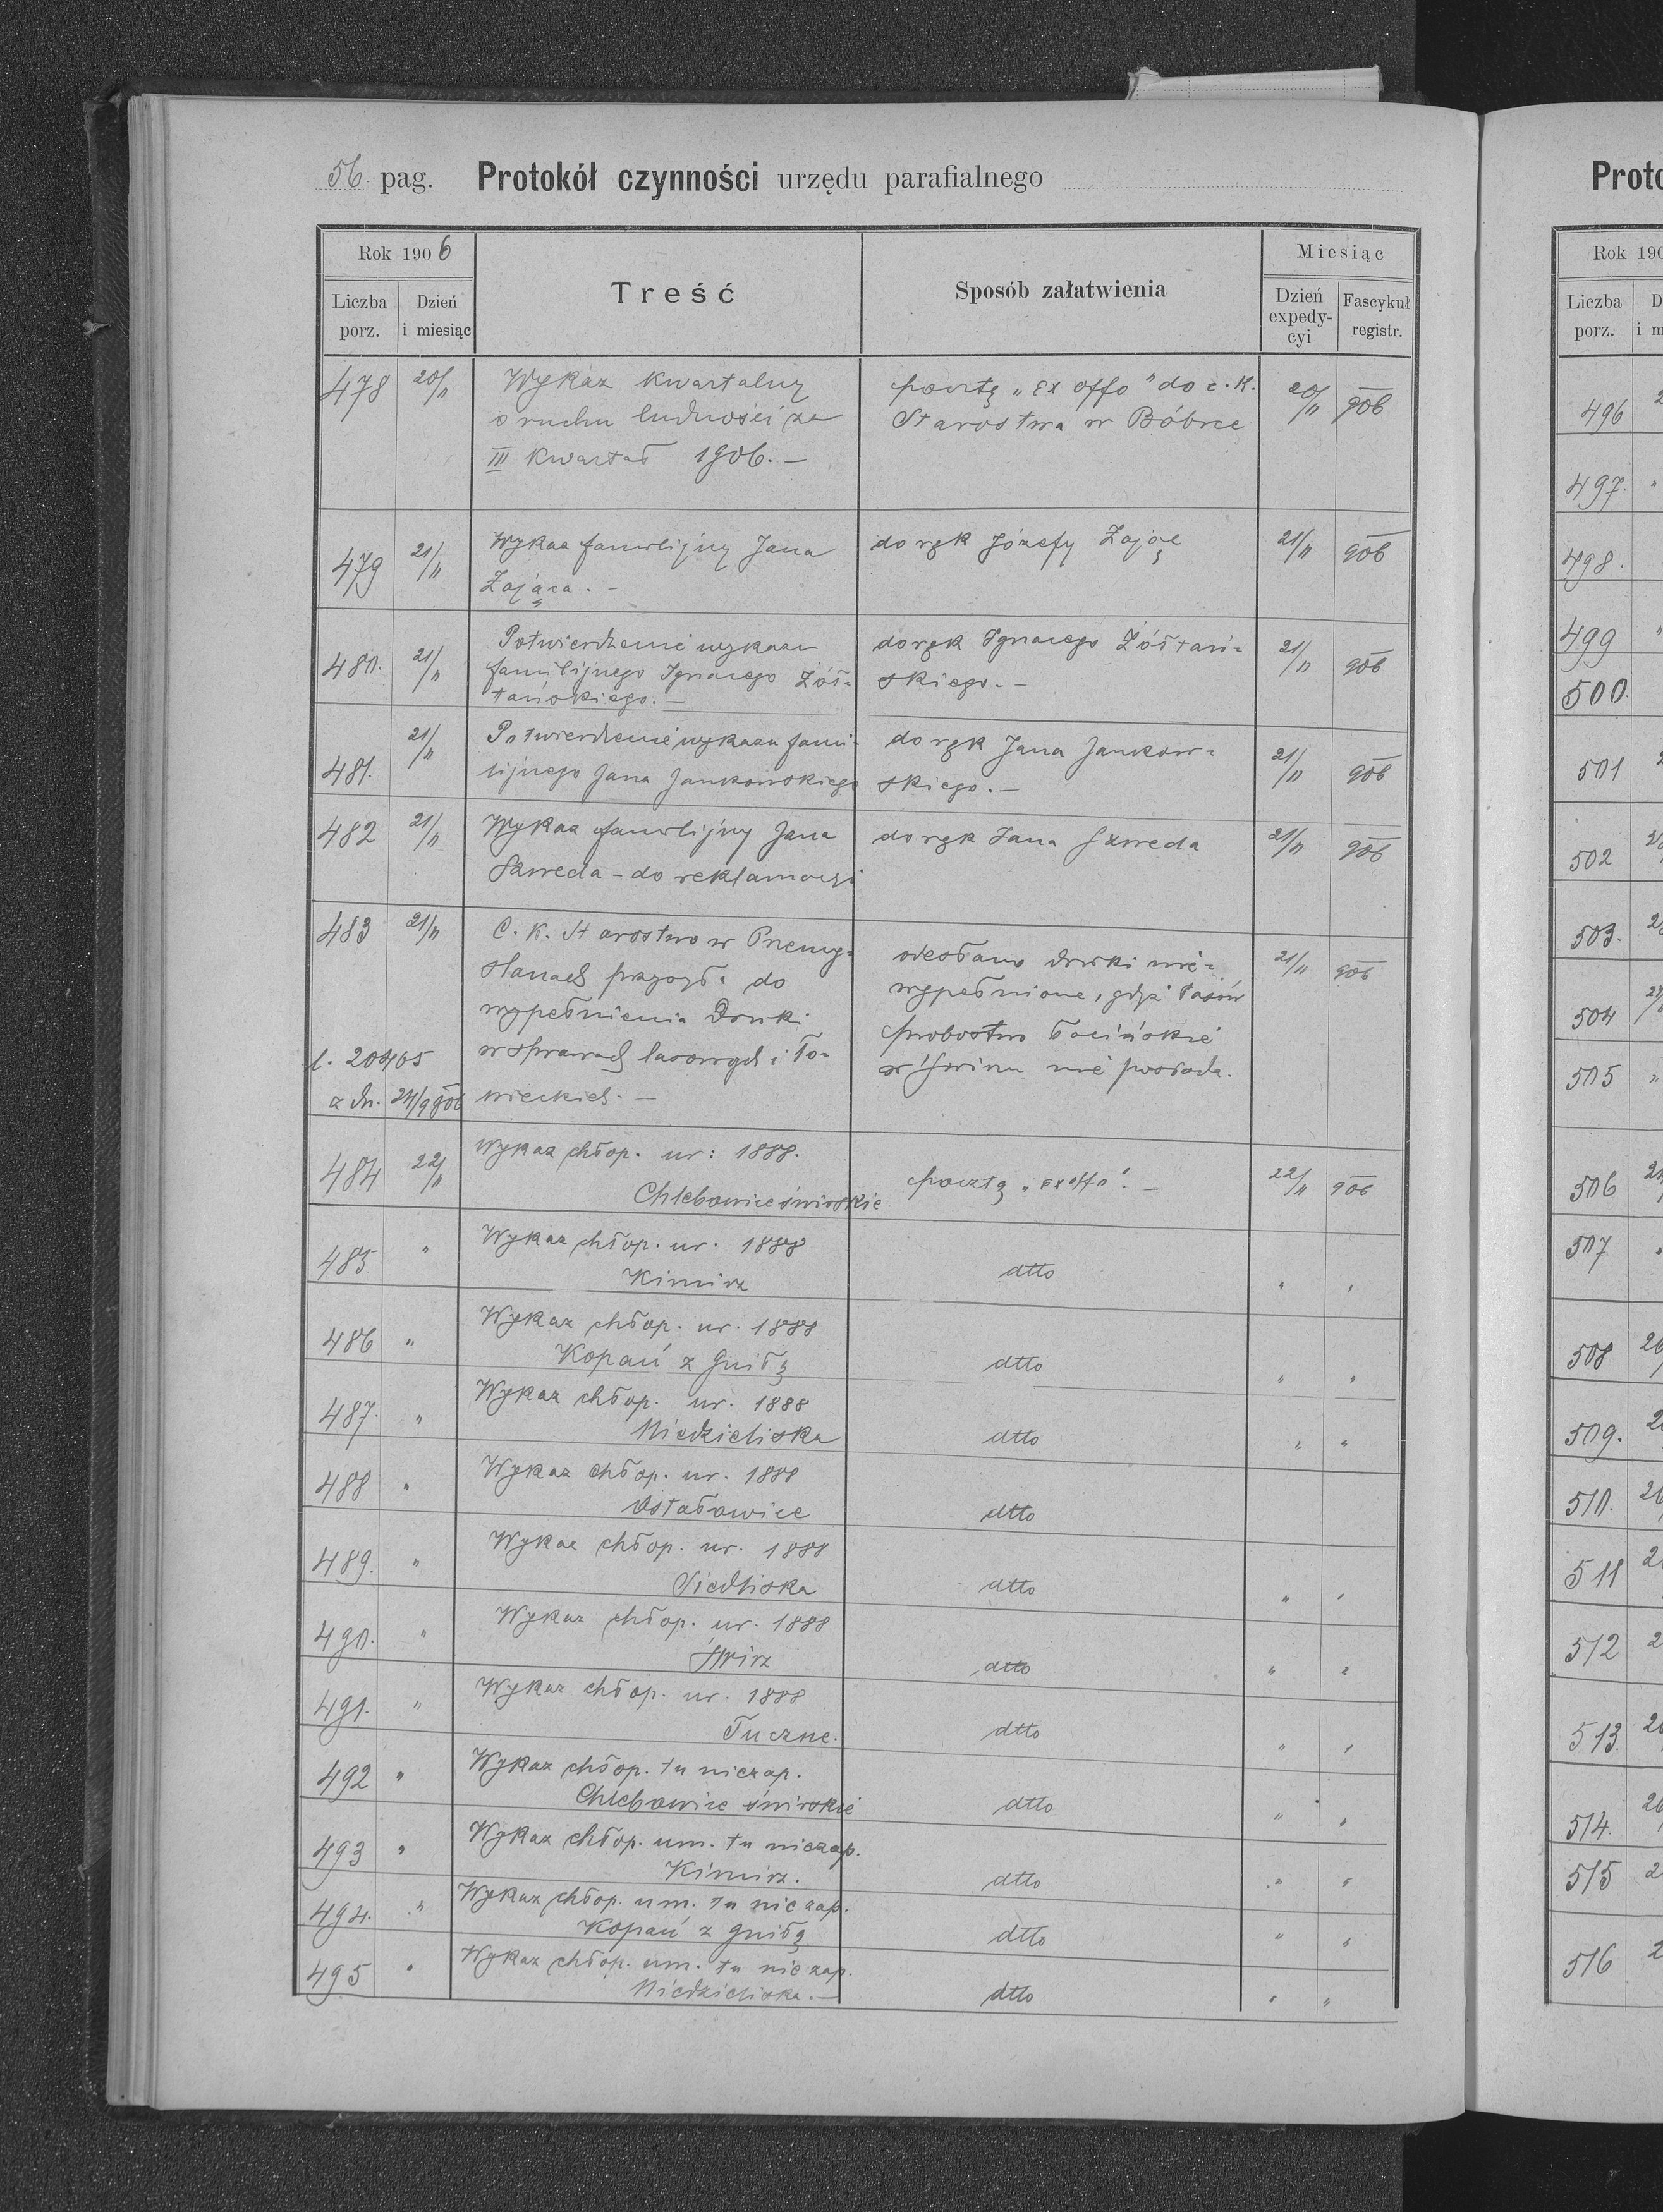 56 pag. Protokół czynności urzędu parafialnego
Rok 1906
Liczba porz.
Dzień i miesiąc
Treść
Sposób załatwienia
Miesiąc
Dzień expedy-cyi
Fascykuł registr.
478 20/11 Wykaz kwartalny pocztą „ex offo" do c. k. 20/11 906
o ruchu ludności za Starostwa w Bóbrce
III kwartał 1906. —
479 21/11 Wykaz familijny Jana do rąk Józefy Zając 21/11 906
Zająca. —
480. 21/11 Potwierdzenie wykazu do rąk Ignacego Żółtań= 21/11 906
familijnego Ignacego Żół= skiego. —
tańskiego. —
481. 21/11 Potwierdzenie wykazu fami= do rąk Jana Jankow= 21/11 906
lijnego Jana Jankowskiego skiego. —
482 21/11 Wykaz familijny Jana do rąk Jana Szweda 21/11 906
Szweda – do reklamacyi
483 21/11 C. K. Starostwo w Przemy= odesłano druki nie= 21/11 906
ślanach do wypełnione, gdyż lasów
wypełnienia Druki probostwo łacińskie
l. 20405 w sprawach lasowych i ło= w Świrzu nie posiada.
z dn. 24/9 906 wieckich. —
484 22/11 Wykaz chłop. ur: 1888. pocztą „ex offo". — 22/11 906
Chlebowice świrskie
485 " Wykaz chłop. ur. 1888
Kimirz dtto " "
486 " Wykaz chłop. ur. 1888
Kopań z Gniłą dtto " "
487. " Wykaz chłop. ur. 1888
Niedzieliska dtto " "
488 " Wykaz chłop. ur. 1888
Ostałowice dtto
489. " Wykaz chłop. ur. 1888
Siedliska dtto " "
490. " Wykaz chłop. ur. 1888
Świrz dtto " "
491. " Wykaz chłop. ur. 1888
Tuczne. dtto " "
492 " Wykaz chłop. tu niezap.
Chlebowice świrskie dtto " "
493 " Wykaz chłop. um. tu niezap.
Kimirz. dtto " "
494. " Wykaz chłop. um. tu niezap.
Kopań z Gniłą dtto " "
495 " Wykaz chłop. um. tu niezap.
Niedzieliska. — dtto " "
Proto
Rok 190
Liczba porz.
D
i m
496
497. "
498.
499 "
500.
501
502
503.
504
505 "
506
507
508
509.
510.
511
512
513.
514.
515
516